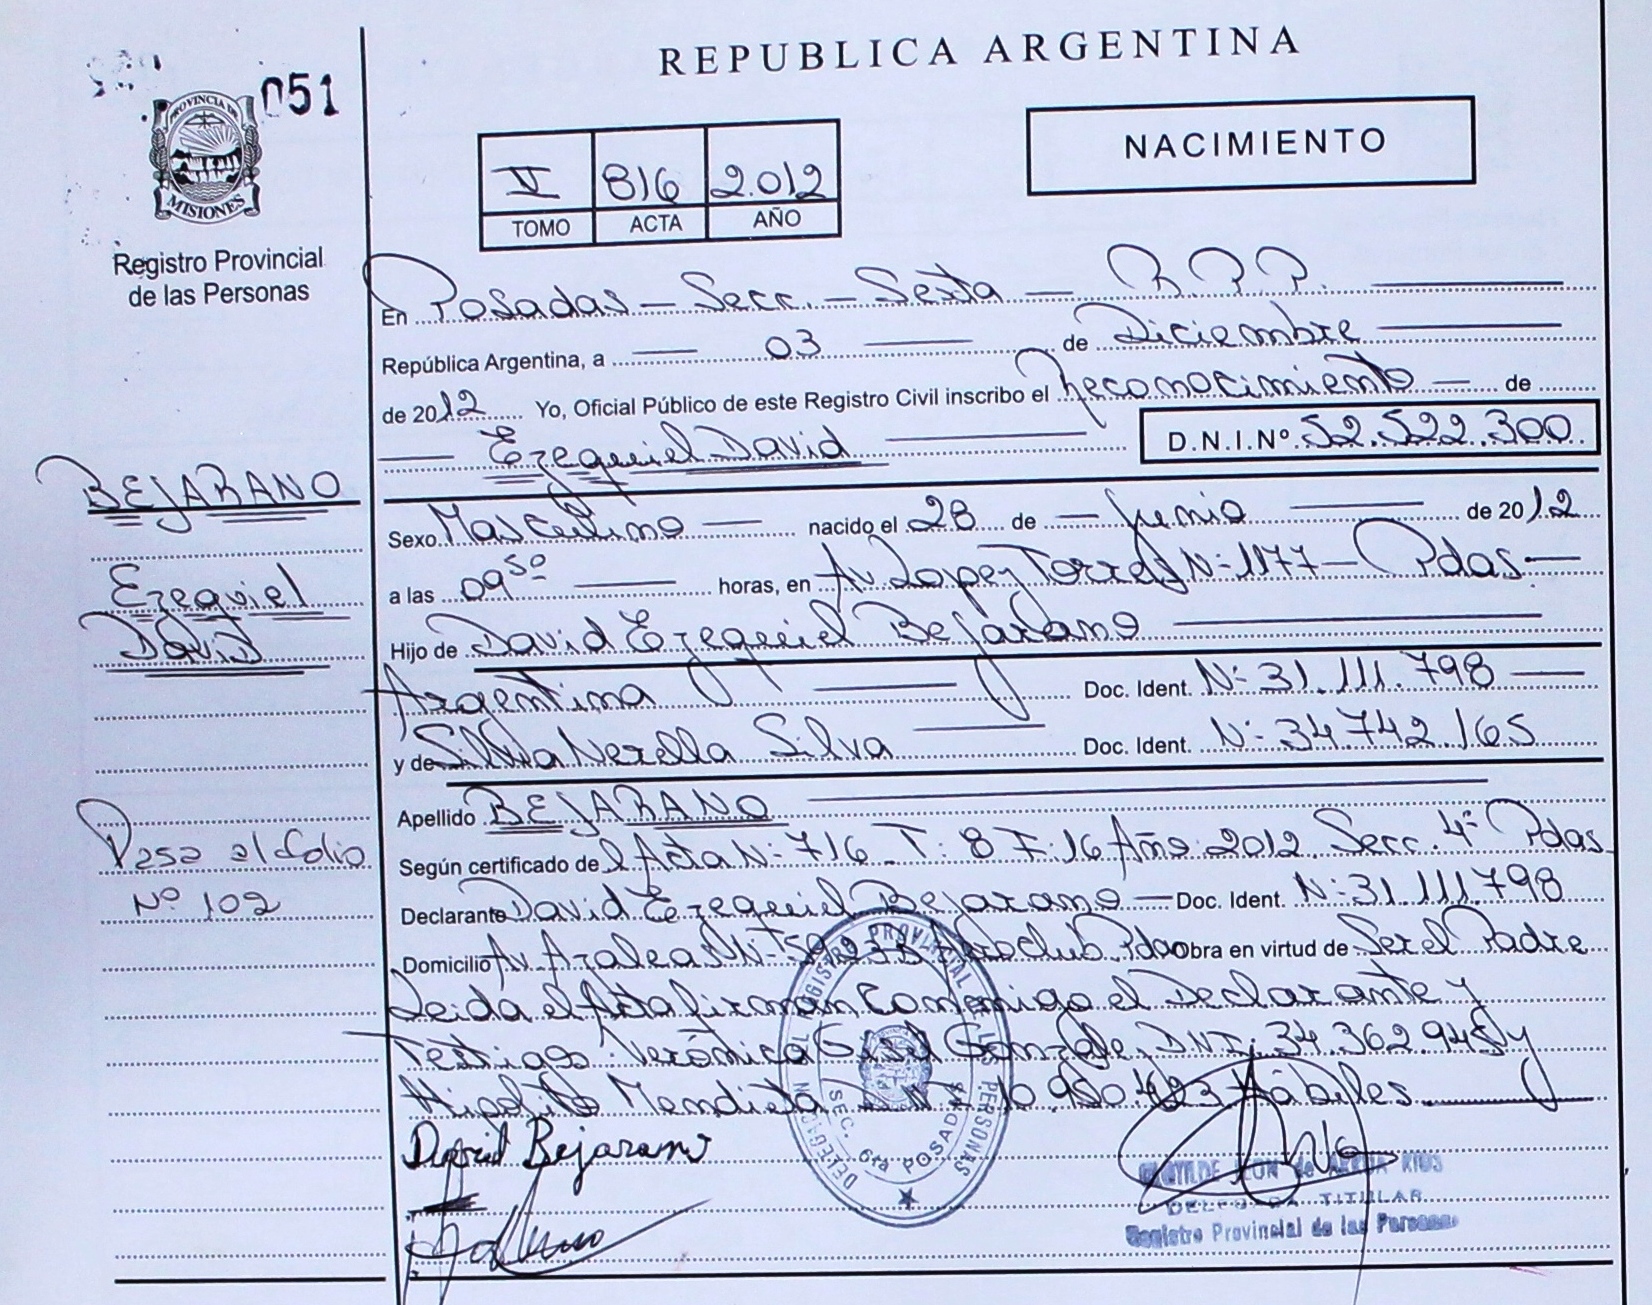 REPUBLICA ARGENTINA
051
PROVINCIA DE
MISIONES
Registro Provincial
de las Personas
NACIMIENTO
V 816 2.012
TOMO ACTA AÑO
En Posadas - Secc. - Sexta - R.P.P.
República Argentina, a 03 de Diciembre
de 2012 Yo, Oficial Público de este Registro Civil inscribo el Reconocimiento - de
Ezequiel David D.N.I.Nº. 52.522.300
BEJARANO
Ezequiel
David
Sexo Masculino nacido el 28 de Junio de 2012
a las 09 50 horas, en Av. Lopez Torres N: 1177 - Pdas -
Hijo de David Ezequiel Bejarano
Argentina Doc. Ident. N: 31.111.798
y de Silvia Nerella Silva Doc. Ident. N: 34.742.165
Apellido BEJARANO
Según certificado de l Acta N: 716 T: 8 F: 16 Año 2012 Secc. 4ª Pdas
Declarante David Ezequiel Bejarano - Doc. Ident. N: 31.111.798
Domicilio Av. Azaleas N: Aeroclub Pdas Obra en virtud de Ser el Padre
Leida el Acta firman Conmigo el Declarante y
Testigos: Verónica Gonzale, DNI: 34.362.945 y
Hipolito Mendieta 10.950.423 Hábiles
Pasa al folio
Nº 102
David Bejarano
DELEGACION DEL REGISTRO PROVINCIAL DE LAS PERSONAS
SEC. 6ta POSADAS
LEON de
DELEGADA TITULAR
Registro Provincial de las Personas